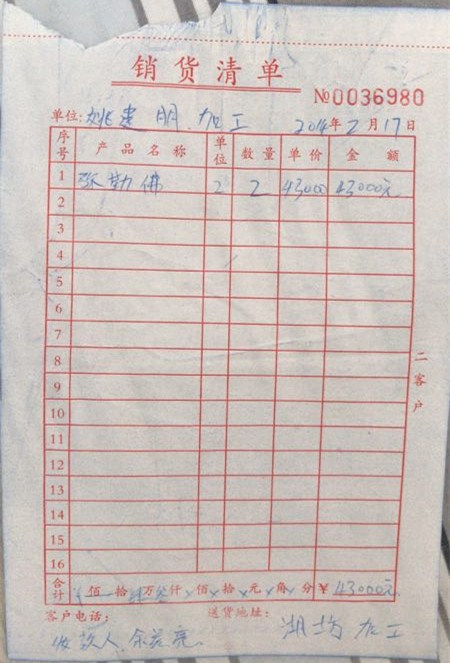 销货清单
№0036980
单位: 姚建朋.加工 2014年2月17日
序号 产品名称 单位 数量 单价 金额
1 弥勒佛 2 2 43000 43000元
2
3
4
5
6
7
8
9
10
11
12
13
14
15
16
二客户
合计 佰 拾肆万叁仟 佰 拾 元 角 分 ¥43000元
客户电话: 送货地址:
收款人 余 亮 湖坊加工